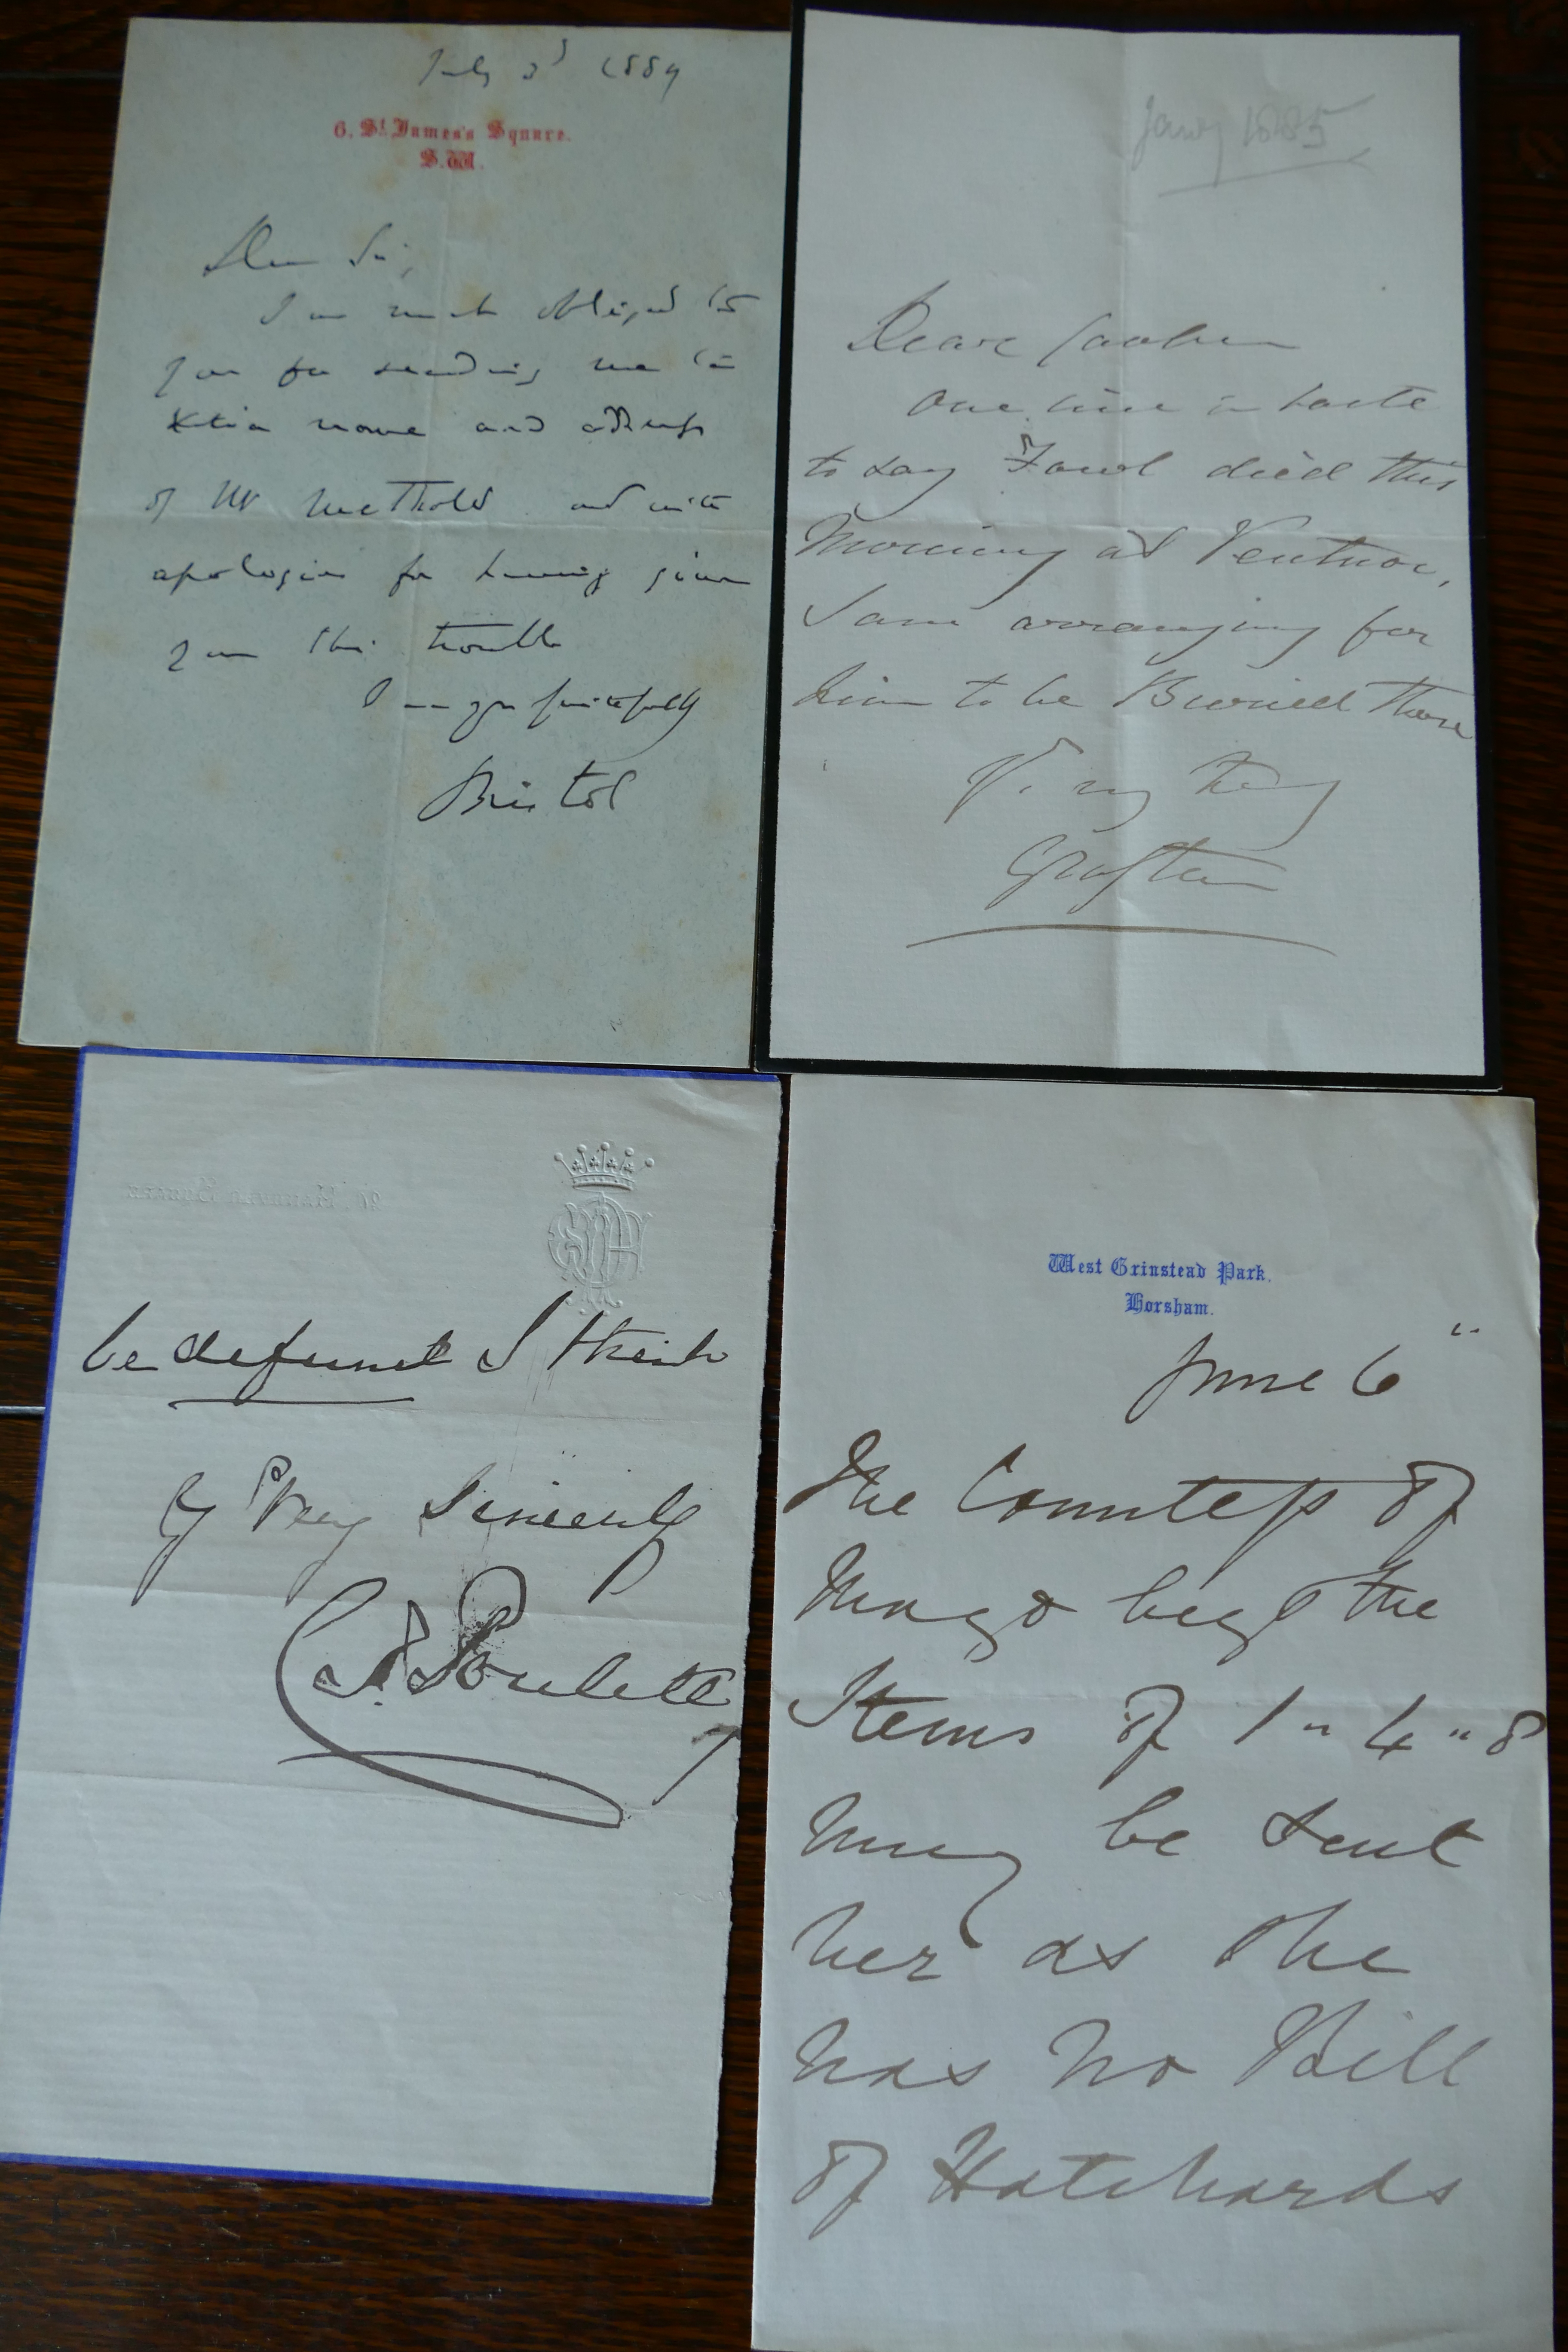 July 3d 1889
6, St. James's Square.
S.W.
Dear Sir,
I am much obliged to
you for sending me the
Xtian name and address
of Mr Methold and with
apologies for having given
you this trouble
I am yrs faithfully
Bristol
Jany 1885
Dear
One line in haste
to say Fowl died this
Morning at Ventnor,
I am arranging for
him to be Buried there
V. truly
Grafton
Hanover Square
be defunct I think
Yr Very Sincerely
Poulett
West Grinstead Park.
Horsham.
June 6"
The Countess of
Mayo begs the
Items of 1 " 4 " 8
may be sent
her as she
has no Bill
of Hatchards